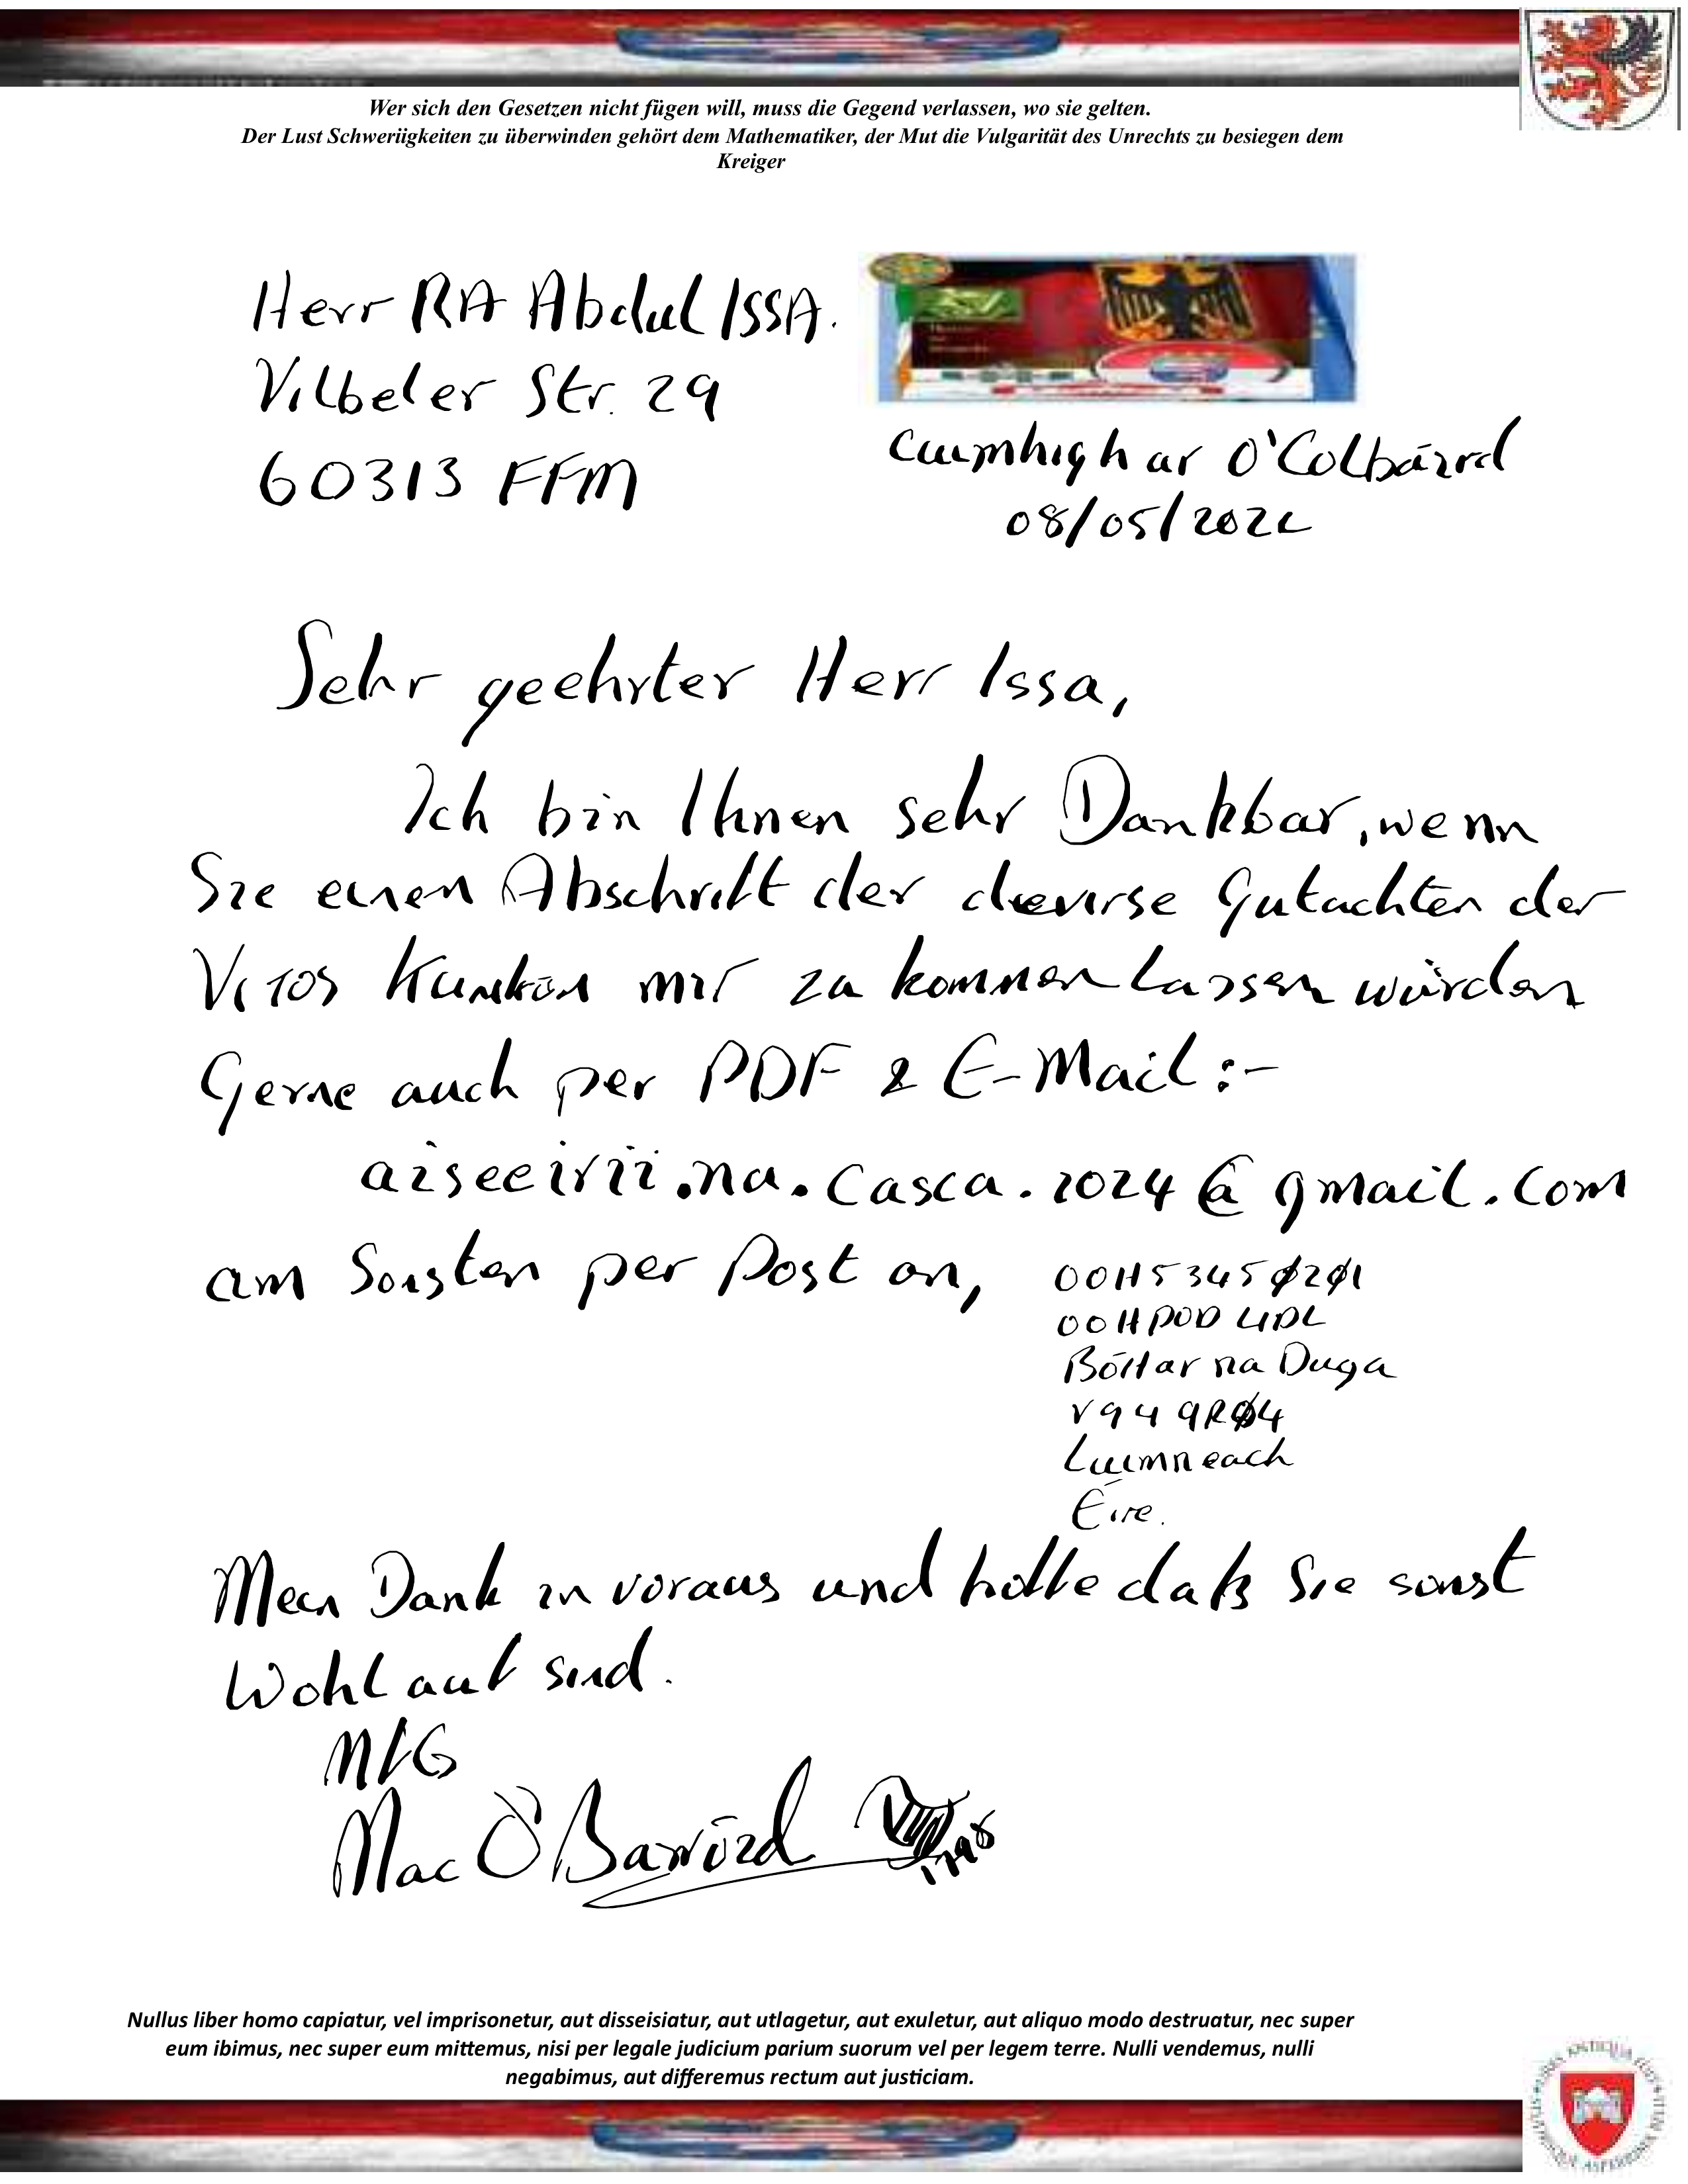 Wer sich den Gesetzen nicht fügen will, muss die Gegend verlassen, wo sie gelten.
Der Lust Schweriigkeiten zu überwinden gehört dem Mathematiker, der Mut die Vulgarität des Unrechts zu besiegen dem
Kreiger
Herr RA Abdul ISSA.
Vilbeler Str. 29
60313 FFM
Cuimhigh ar O'Colbáird
08/05/202
Sehr geehrter Herr Issa,
Ich bin Ihnen sehr Dankbar, wenn
Sie einen Abschrift der dieverse Gutachten der
Vitos mir zu kommen lassen würden
Gerne auch per PDF & E-Mail:-
aiseeirii.na.casca.2024@gmail.com
am Sonsten per Post an,
00H53450201
00HPOD LIDL
Bóthar na Duga
V94 9R04
Luimneach
Éire.
Mein Dank in voraus und hoffe daß Sie sonst
Wohl auf sind.
MfG
Mac
Nullus liber homo capiatur, vel imprisonetur, aut disseisiatur, aut utlagetur, aut exuletur, aut aliquo modo destruatur, nec super
eum ibimus, nec super eum mittemus, nisi per legale judicium parium suorum vel per legem terre. Nulli vendemus, nulli
negabimus, aut differemus rectum aut justiciam.